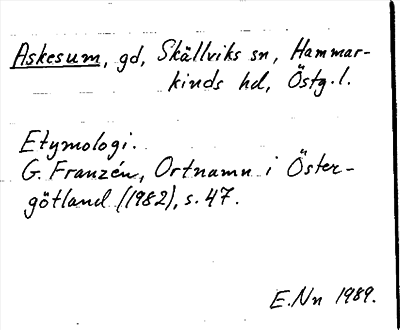 Askesum, gd, Skällviks sn, Hammar-
kinds hd, Östg.l.
Etymologi.
G. Franzén, Ortnamn i Öster-
götland (1982), s. 47.
E.Nn 1989.